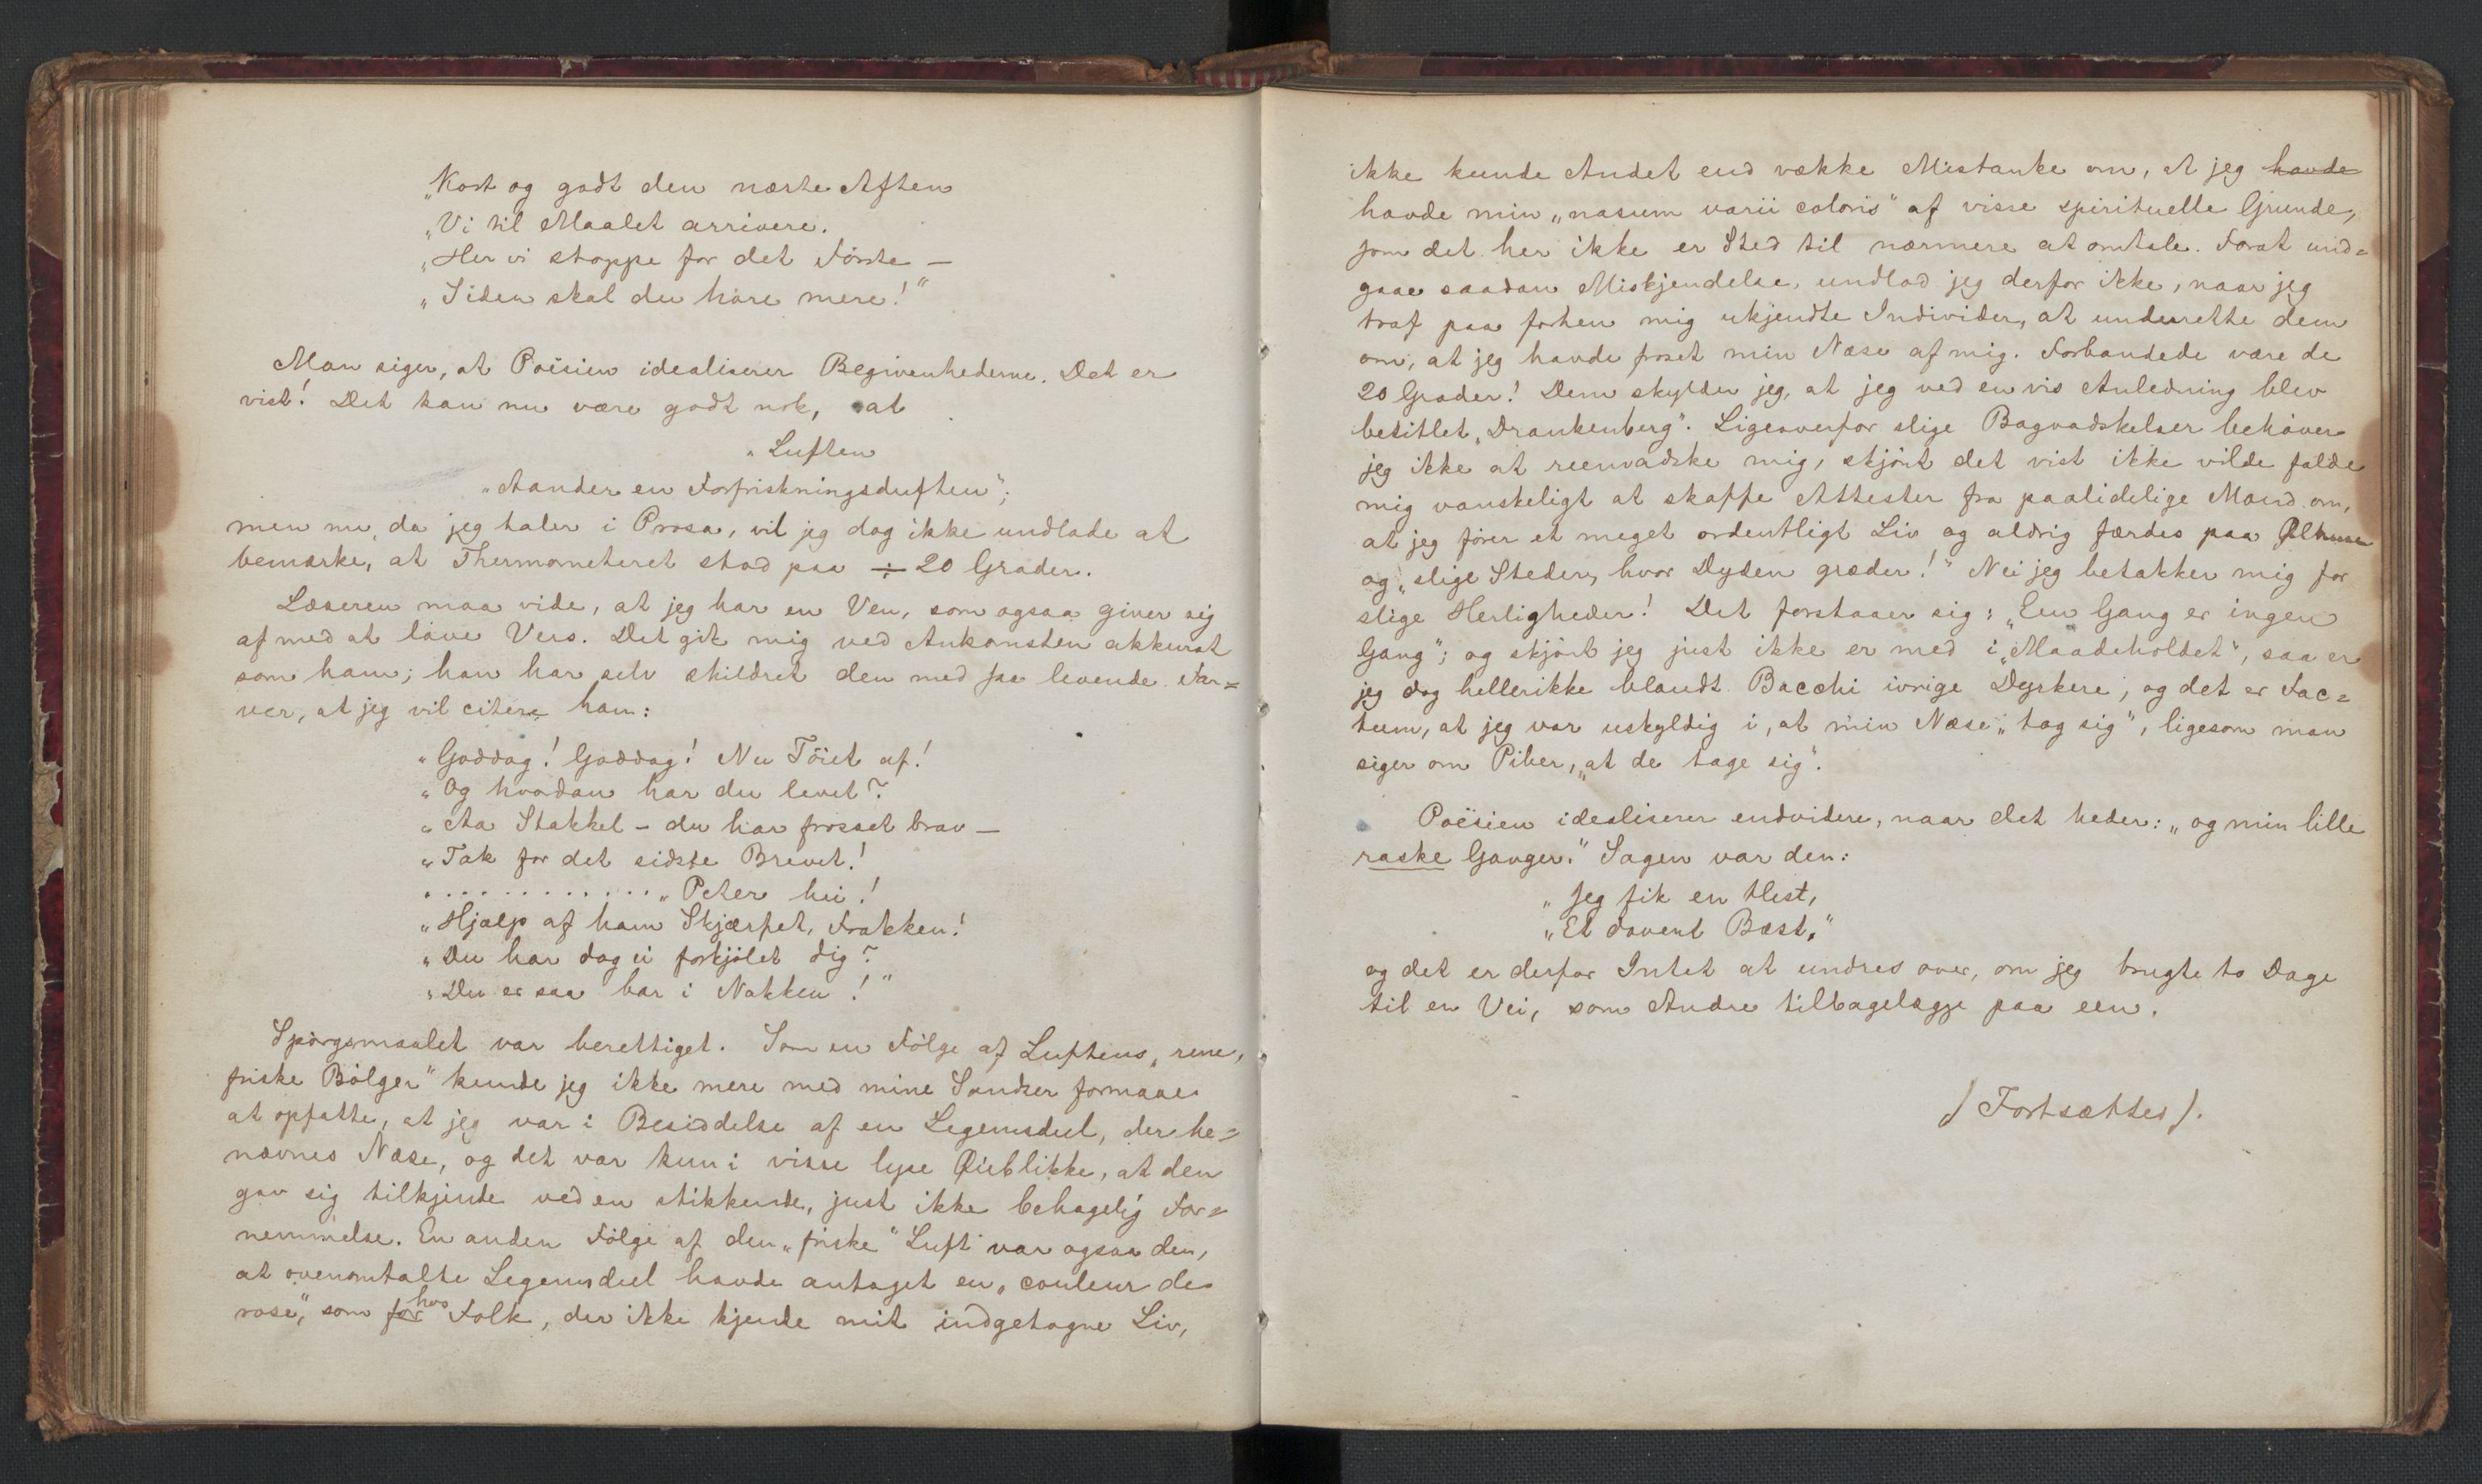 „Kort og godt den næste Aften
„Vi til Maalet arrivere.
„Her vi stoppe for det Første —
„Siden skal du høre mere!"
Man siger, at Poësien idealiserer Begivenhederne. Det er
vist! Det kan nu være godt nok, at
„Luften
„Aander en Forfriskningsduften";
men nu, da jeg taler i Prosa, vil jeg dog ikke undlade at
bemærke, at Thermometeret stod paa ÷ 20 Grader.
Læseren maa vide, at jeg har en Ven, som ogsaa giver sig
af med at lave Vers. Det gik mig ved Ankomsten akkurat
som ham; han har selv skildret den med saa levende Far=
ver, at jeg vil citere ham:
„Goddag! Goddag! Nu Töiet af!
„Og hvordan har du levet?
„Aa Stakkel – du har frosset brav —
„Tak for det sidste Brevet!
. . . . . . . . . . . . „Peter hei!
„Hjælp af ham Skjærfet, Frakken!
„Du har dog ei forkjölet dig?
„Du er saa bar i Nakken!"
Spörgsmaalet var berettiget. Som en Fölge af Luftens „rene,
friske Bölger" kunde jeg ikke mere med mine Sandser formaae
at opfatte, at jeg var i Besiddelse af en Legemsdeel, der be=
nævnes Næse, og det var kun i visse lyse Øieblikke, at den
gav sig tilkjende ved en stikkende, just ikke behagelig For=
nemmelse. En anden Fölge af den „friske" Luft var ogsaa den,
at ovenomtalte Legemsdeel havde antaget en „couleur de
rose", som for hos Folk, der ikke kjende mit indgetogne Liv,
ikke kunde Andet end vække Mistanke om, at jeg havde
havde min „nasum varii coloris" af visse spirituelle Grunde,
som det her ikke er Sted til nærmere at omtale. Forat und=
gaae saadan Miskjendelse, undlod jeg derfor ikke, naar jeg
traf paa forhen mig ukjendte Individer, at underrette dem
om, at jeg havde froset min Næse af mig. Forbandede være de
20 Grader! Dem skylder jeg, at jeg ved en vis Anledning blev
betitlet „Drankenberg". Ligeoverfor slige Bagvadskelser behöver
jeg ikke at reenvadske mig, skjönt det vist ikke vilde falde
mig vanskeligt at skaffe Attester fra paalidelige Mænd om,
at jeg förer et meget ordentligt Liv og aldrig færdes paa Ølhuse
og „slige Steder, hvor Dyden græder!" Nei jeg betakker mig for
slige Herligheder! Det forstaaer sig: „Een Gang er ingen
Gang"; og skjönt jeg just ikke er med i „Maadeholdet", saa er
jeg dog hellerikke blandt Bacchi ivrige Dyrkere; og det er Fac=
tum, at jeg var uskyldig i, at min Næse „tog sig", ligesom man
siger om Piber, „at de tage sig".
Poësien idealiserer endvidere, naar det heder: „og min lille
raske Ganger." Sagen var den:
„Jeg fik en Hest,
„Et dovent Bæst,"
og det er derfor Intet at undres over, om jeg brugte to Dage
til en Vei, som Andre tilbagelægge paa een.
/ Fortsættes /.